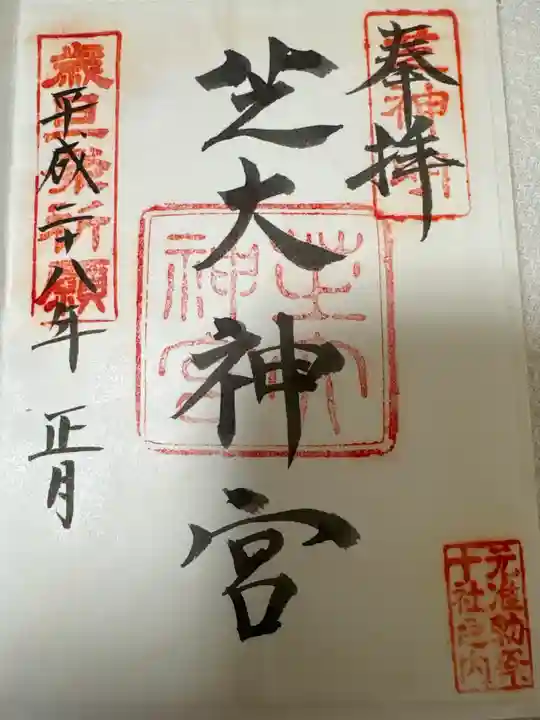 奉拝
芝大神宮
芝大神宮
元准勅祭
十社之内
平成二十八年 正月